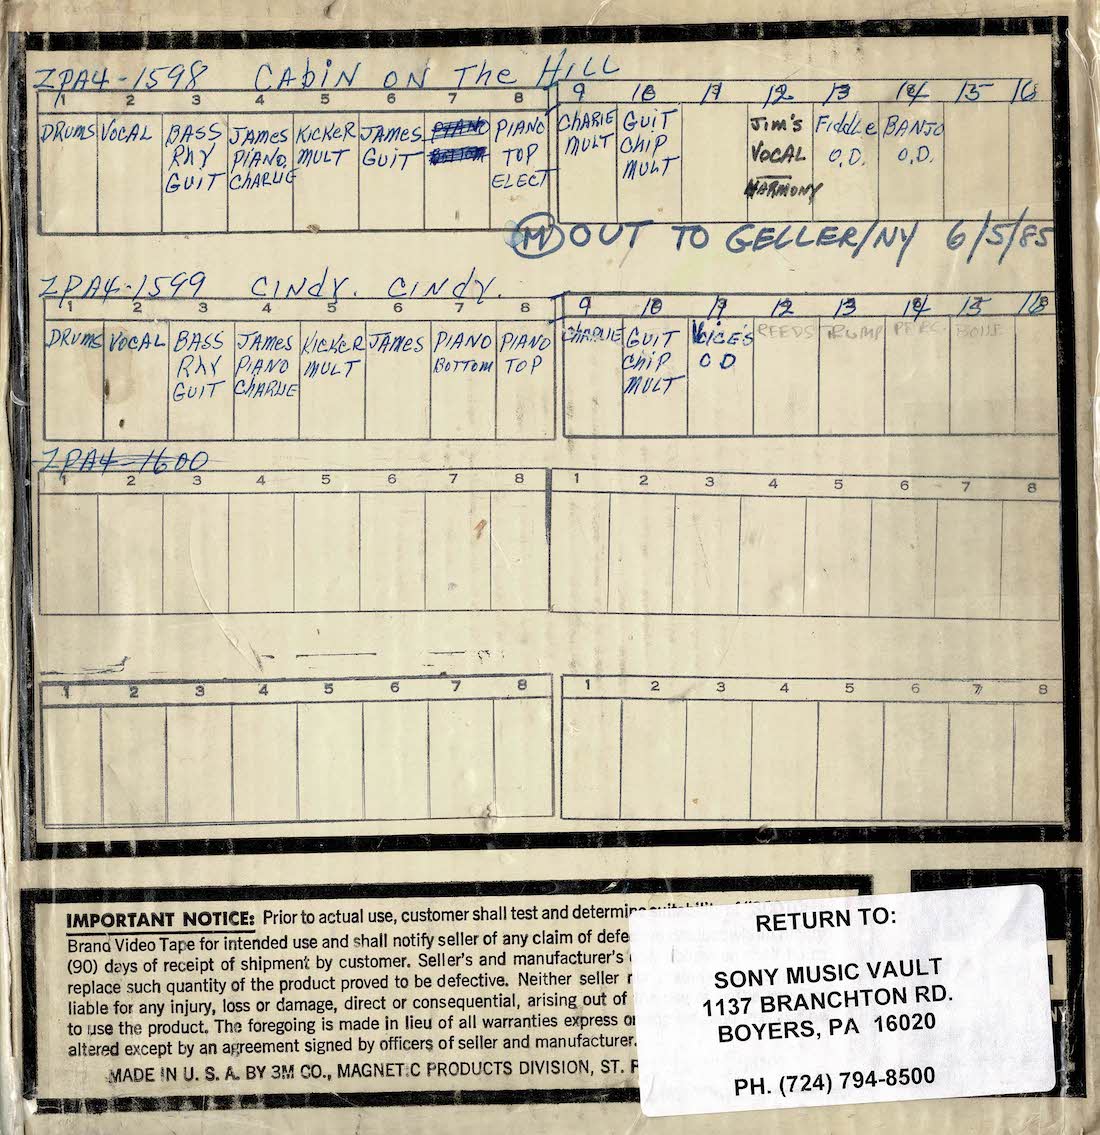 ZPA4-1598 CABIN ON THE HILL
1 2 3 4 5 6 7 8 9 10 11 12 13 14 15 16
DRUMS VOCAL BASS JAMES KICKER JAMES PIANO PIANO CHARIE GUIT JIM'S FIDDLE BANJO
RHY PIANO MULT GUIT BOTTOM TOP MULT CHIP VOCAL O.D. O.D.
GUIT CHARLIE ELECT MULT HARMONY
M OUT TO GELLER/NY 6/5/85
ZPA4-1599 CINDY. CINDY.
1 2 3 4 5 6 7 8 9 10 11 12 13 14 15 16
DRUMS VOCAL BASS JAMES KICKER JAMES PIANO PIANO CHARLIE GUIT VOICE'S REEDS TRUMP PERC BONE
RHY PIANO MULT BOTTOM TOP CHIP OD
GUIT CHARLIE MULT
ZPA4-1600
1 2 3 4 5 6 7 8 1 2 3 4 5 6 7 8
1 2 3 4 5 6 7 8 1 2 3 4 5 6 7 8
IMPORTANT NOTICE: Prior to actual use, customer shall test and determine
Brand Video Tape for intended use and shall notify seller of any claim of defe
(90) days of receipt of shipment by customer. Seller's and manufacturer's
replace such quantity of the product proved to be defective. Neither seller
liable for any injury, loss or damage, direct or consequential, arising out of
to use the product. The foregoing is made in lieu of all warranties express or
altered except by an agreement signed by officers of seller and manufacturer.
MADE IN U. S. A. BY 3M CO., MAGNETIC PRODUCTS DIVISION, ST. P
RETURN TO:
SONY MUSIC VAULT
1137 BRANCHTON RD.
BOYERS, PA 16020
PH. (724) 794-8500